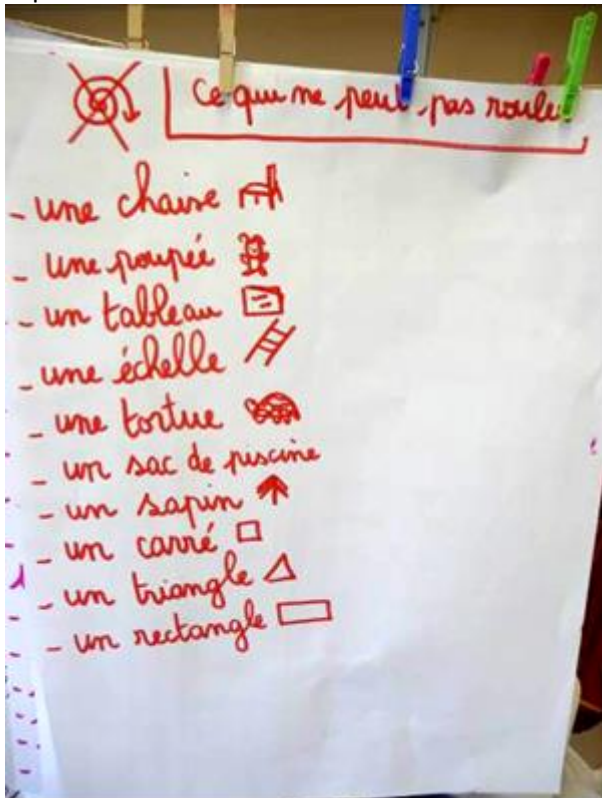 Ce qui ne peut pas rouler
- une chaise
- une poupée
- un tableau
- une échelle
- une tortue
- un sac de piscine
- un sapin
- un carré
- un triangle
- un rectangle